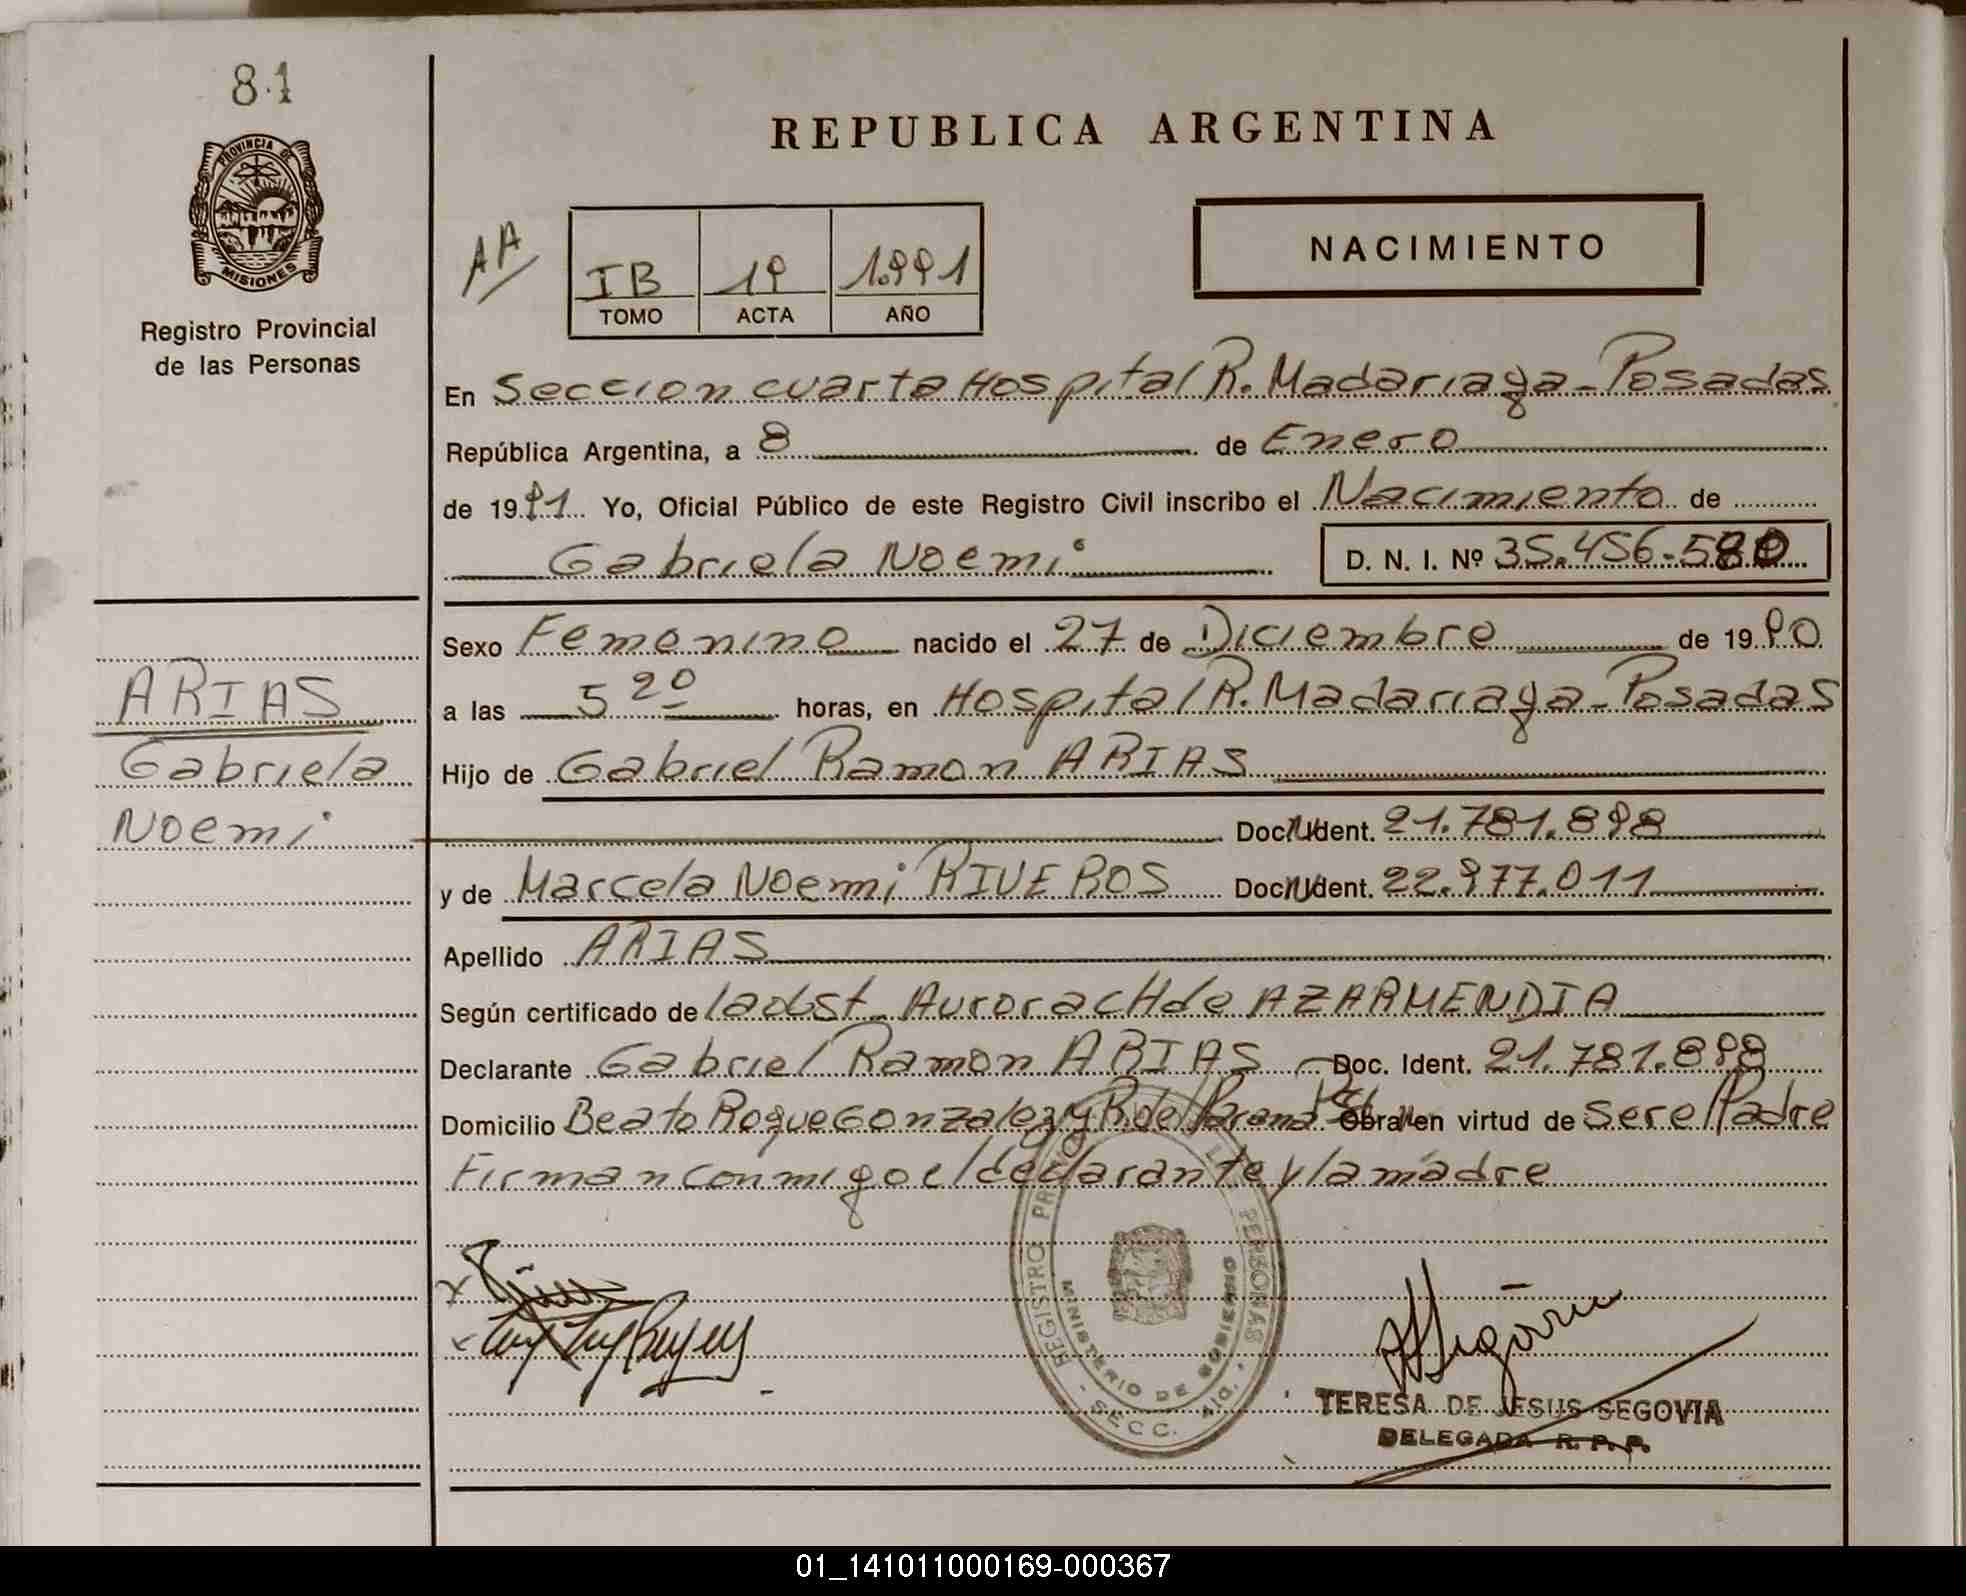 81
PROVINCIA DE
MISIONES
Registro Provincial
de las Personas
REPUBLICA ARGENTINA
AA
IB 19 1.991
TOMO ACTA AÑO
NACIMIENTO
En Seccion cuarta Hospital R. Madariaga - Posadas
República Argentina, a 8 de Enero
de 1991 Yo, Oficial Público de este Registro Civil inscribo el Nacimiento de
Gabriela Noemi D. N. I. Nº 35.456.580
Sexo Femenino nacido el 27 de Diciembre de 1990
a las 5 20 horas, en Hospital R. Madariaga - Posadas
Hijo de Gabriel Ramon ARIAS
Doc. Ident. 21.781.898
y de Marcela Noemi RIVEROS Doc. Ident. 22.977.011
Apellido ARIAS
Según certificado de la obst. Aurora CH de AZARMENDIA
Declarante Gabriel Ramon ARIAS Doc. Ident. 21.781.898
Domicilio Beato Roque Gonzalez y R. del Parana Obra en virtud de ser el Padre
Firman conmigo el declarante y la madre
ARIAS
Gabriela
Noemi
REGISTRO PERSONAS
MINISTERIO DE GOBIERNO
SECC.
TERESA DE JESUS SEGOVIA
DELEGADA R. P. P.
01_141011000169-000367